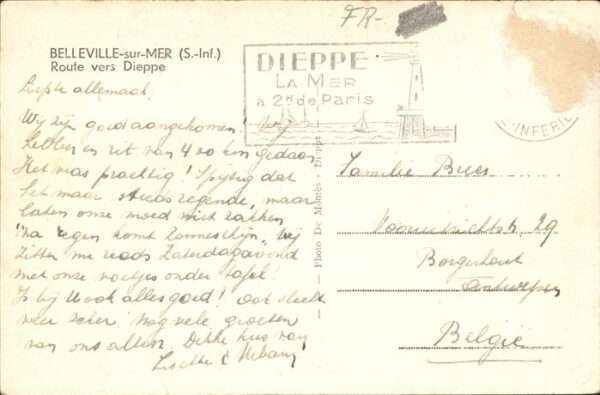 FR-
BELLEVILLE-sur-MER (S.-Inf.)
Route vers Dieppe
DIEPPE
LA MER
à 2h de Paris
INFERIE
Liefste allemaal,
Wij zijn goed aangekomen! Wij
hebben een rit van 400 km gedaan
Het was prachtig! Spijtig dat
het maar steeds regende, maar
laten onze moed niet zakken
"Na regen komt zonneschijn" Wij
zitten nu reeds Zaterdagavond
met onze voetjes onder tafel!
Is bij U ook alles goed!
weer zeker! Nog vele groeten
van ons allen. Dikke kus van
Liselke &
Photo De Montès - Dieppe
Familie Bries
29
Borgerhout
Antwerpen
België